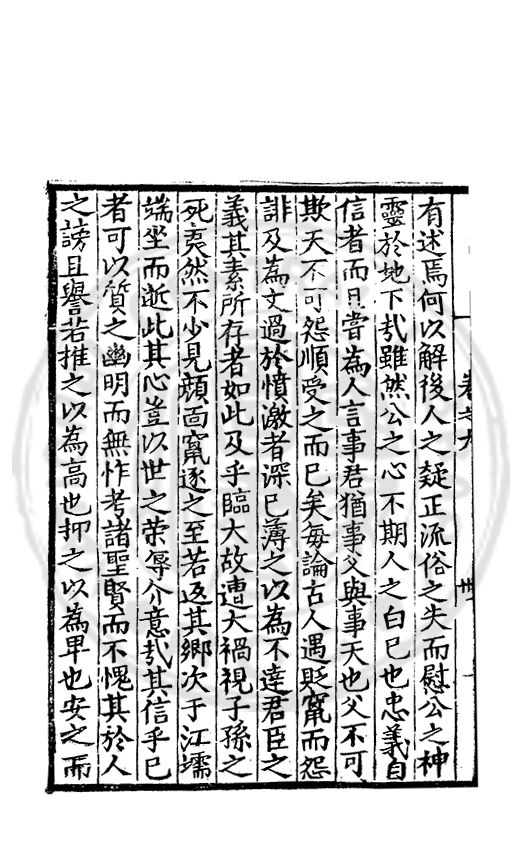 有述焉何以解後人之疑正流俗之失而慰公之神
靈於地下㢤雖然公之心不期人之白已也忠義自
信者而且嘗為人言事君猶事父與事天也父不可
欺天不可怨順受之而已矣每論古人遇貶竄而怨
誹及為文過於憤激者深已薄之以為不達君臣之
義其素所存者如此及乎臨大故遭大禍視子孫之
死喪然不少見顔面竄逐之至若返其鄉次于江壖
端坐而逝此其心豈以世之荣辱介意㢤其信乎已
者可以質之幽明而無怍考諸聖賢而不愧其於人
之謗且譽若推之以為高也抑之以為卑也安之而